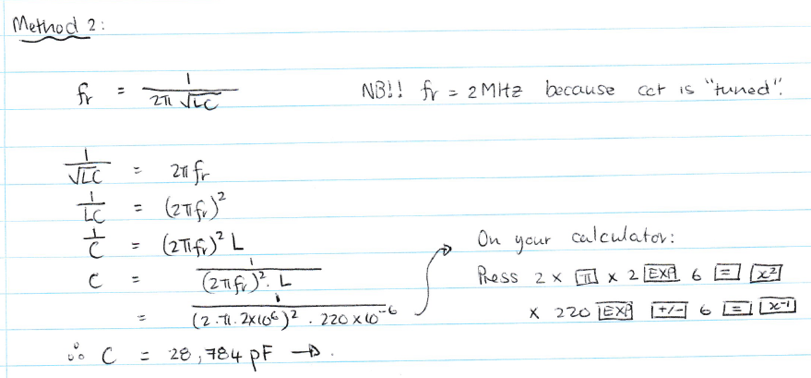 Method 2:
fr = 1 / 2π √LC NB!! fr = 2 MHz because cct is "tuned".
1 / √LC = 2π fr
1 / LC = (2πfr)²
1 / C = (2πfr)² L
C = 1 / (2πfr)². L
= 1 / (2.π.2x10⁶)² . 220 x 10⁻⁶
∴ C = 28,784 pF →.
On your calculator:
Press 2 x [π] x 2 [EXP] 6 [=] [x²]
x 220 [EXP] [+/-] 6 [=] [x-1]